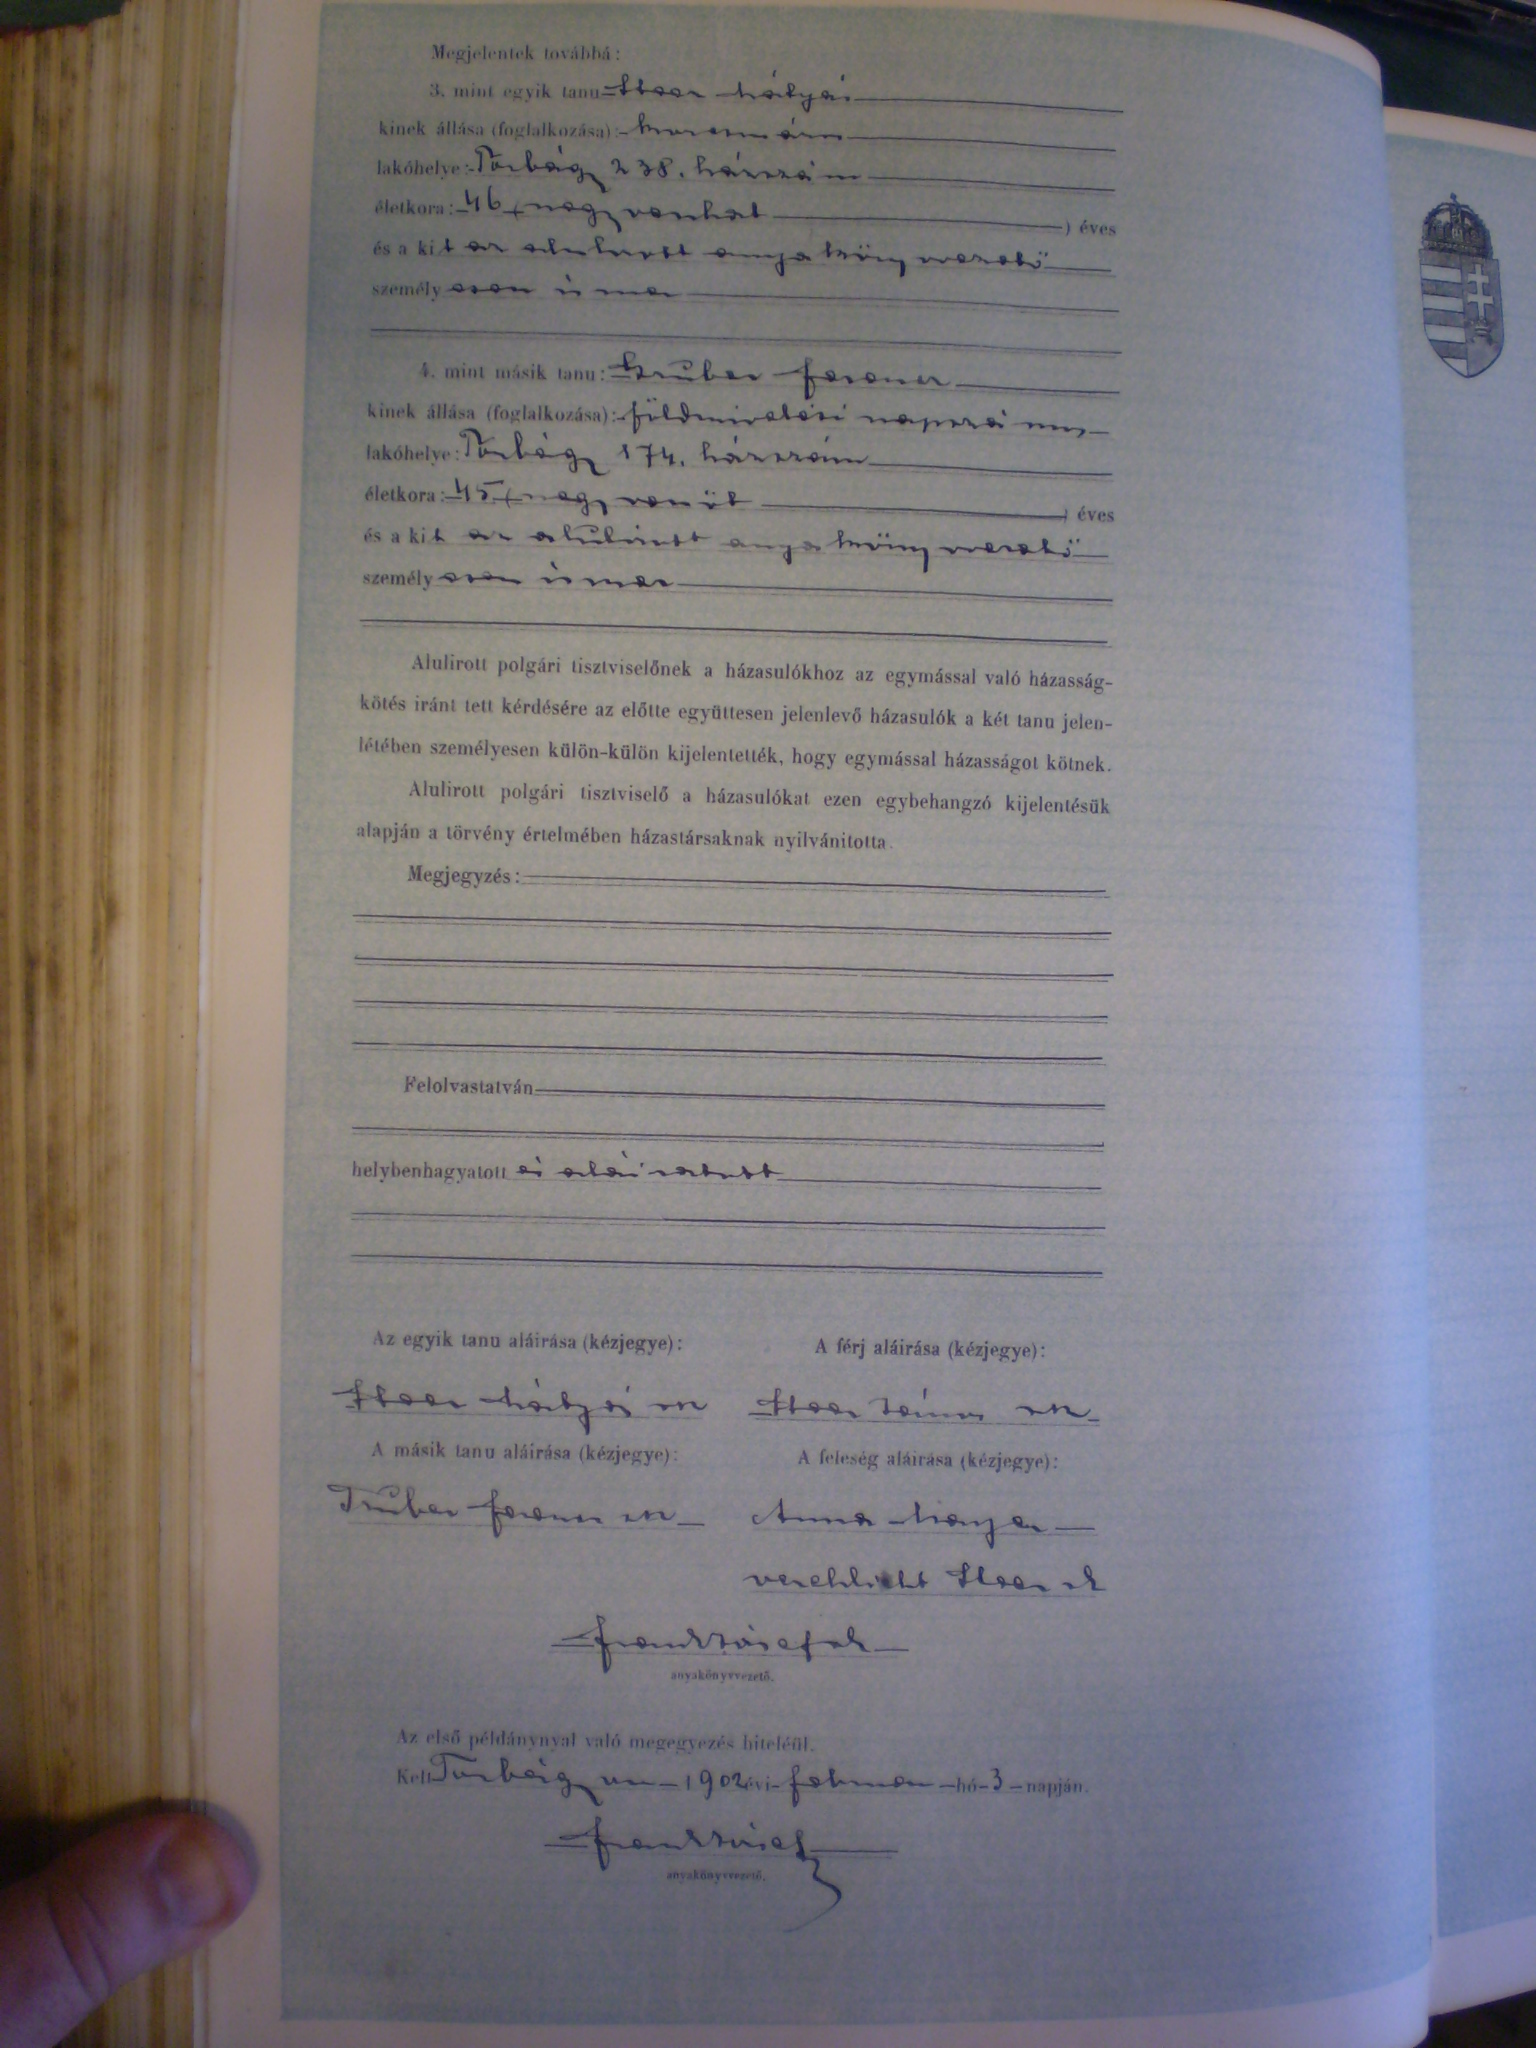 Megjelentek továbbá:
3. mint egyik tanu Stoor Mátyás
kinek állása (foglalkozása): korcsmáros
lakóhelye: Torbágy 238. házszám
életkora: 46 (negyvenhat) éves
és a kit az alulirott anyakönyvvezető
személyesen ismer
4. mint másik tanu: Gruber Ferencz
kinek állása (foglalkozása): földmivelési napszámos
lakóhelye: Torbágy 174. házszám
életkora: 45 (negyvenöt) éves
és a kit az alulirott anyakönyvvezető
személyesen ismer
Alulirott polgári tisztviselőnek a házasulókhoz az egymással való házasság-
kötés iránt tett kérdésére az előtte együttesen jelenlevő házasulók a két tanu jelen-
létében személyesen külön-külön kijelentették, hogy egymással házasságot kötnek.
Alulirott polgári tisztviselő a házasulókat ezen egybehangzó kijelentésük
alapján a törvény értelmében házastársaknak nyilvánitotta.
Megjegyzés:
Felolvastatván
helybenhagyatott és aláiratott
Az egyik tanu aláirása (kézjegye): A férj aláirása (kézjegye):
Mátyás János
A másik tanu aláirása (kézjegye): A feleség aláirása (kézjegye):
Gruber Ferencz Anna
verehlicht
Frank József
anyakönyvvezető.
Az első példánynyal való megegyezés hiteléül.
Kelt Torbágyon 1902 évi február hó 3 napján.
Frank József
anyakönyvvezető.